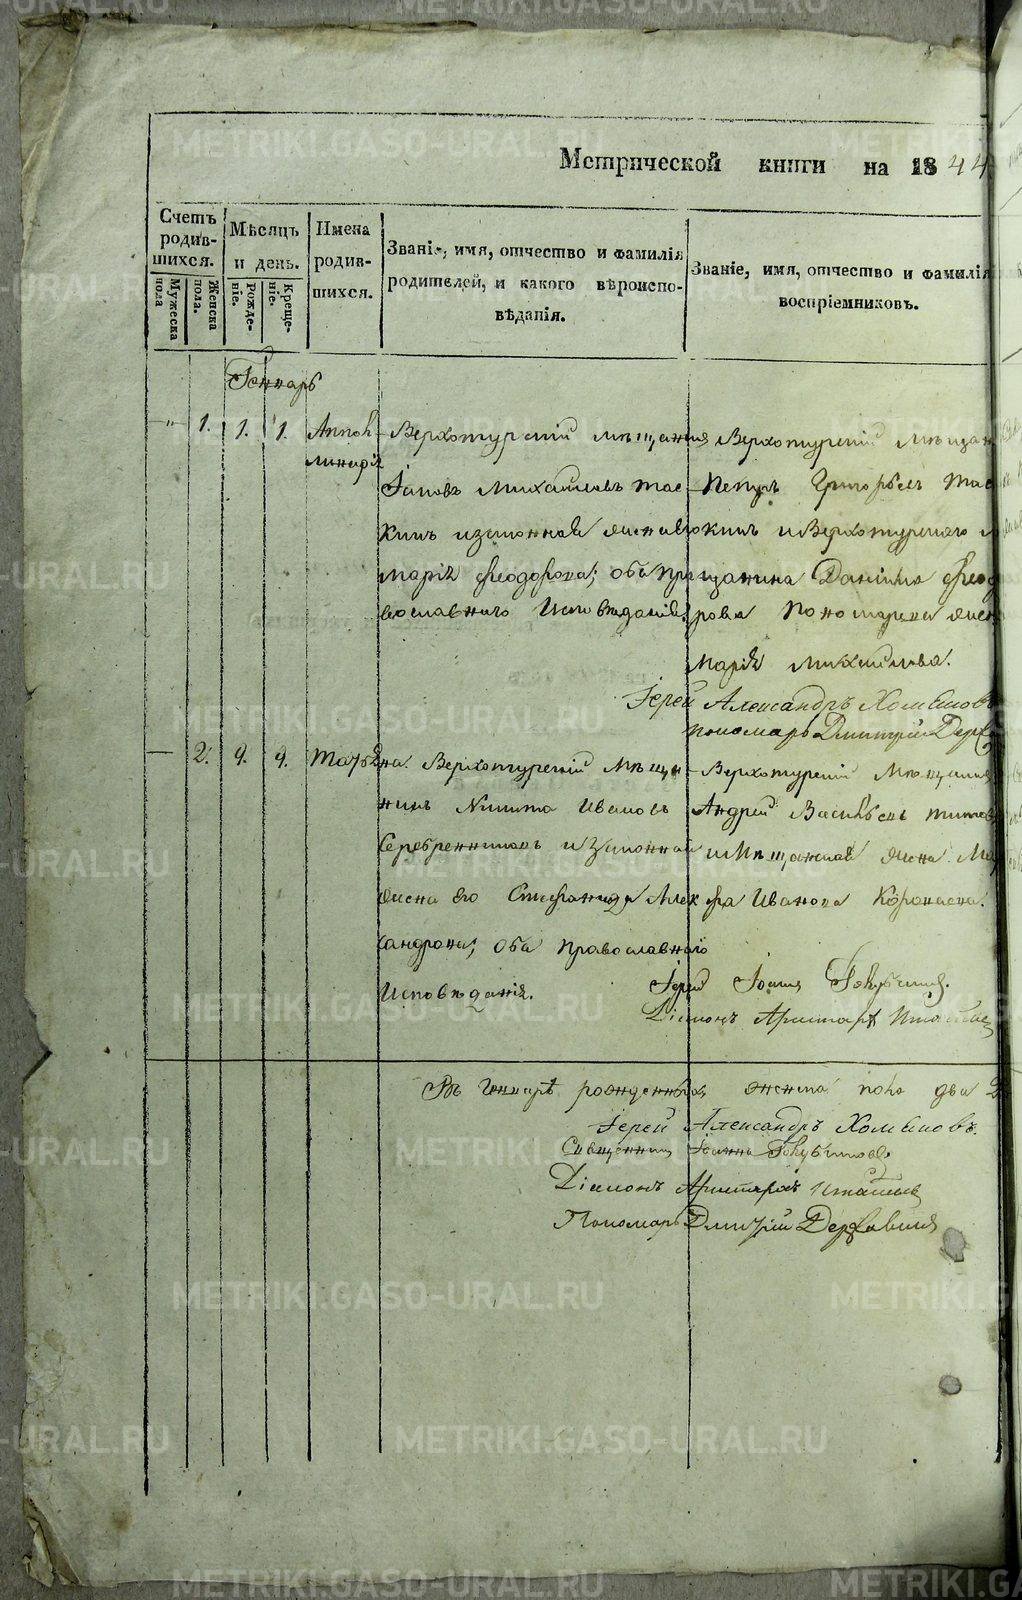 Метрической книги на 1844
Счетъ родив-шихся.
Мужеска пола
Женска пола.
Мѣсяцъ и день.
рожде-ніе.
Креще-ніе.
Имена родив-шихся.
Званіе, имя, отчество и фамилія
родителей, и какого вѣроиспо-
вѣданія.
Званіе, имя, отчество и фамилія
воспріемниковъ.
Геннарь
1. 1. 1. Аппол-
линарія
Верхотурскій мѣщанинъ
Михайловъ
кинъ и законная жена его
Марія Феодорова; оба пра-
вославнаго Исповѣданія.
Верхотурскій Мѣщан
Петръ Григорьевъ
кинъ и Верхотурскаго м
щанина Даніила Феод
рова Пономарева жен
Марія Михайлова.
Іерей Александръ Хомяковъ
пономарь Димитрій Держ
2. 9. 9. Татьяна.
Верхотурскій Мѣща-
нинъ Никита Ивановъ
Серебренниковъ и законная
жена его Стефанида Алек-
сандрова; оба Православнаго
Исповѣданія.
Верхотурскій Мѣщанинъ
Андрей Васильевъ Титов
и Мѣщанская жена Ма
фа Иванова
Іерей
Діаконъ Аристархъ
Въ Генварѣ рожденныхъ женска пола два 2
Іерей Александръ Хомяковъ.
Священникъ Іоаннъ
Діаконъ Аристархъ
Пономарь Димитрій Державинъ
METRIKI.GASO-URAL.RU